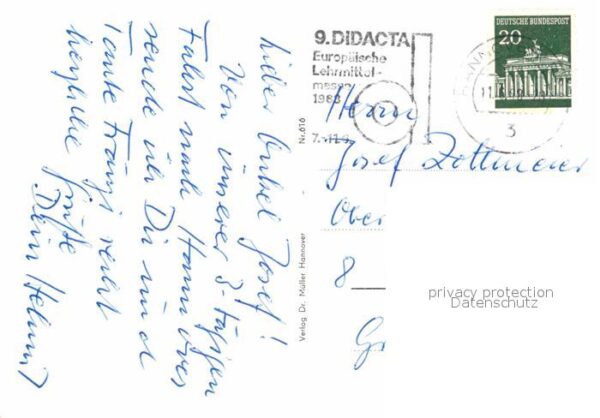 Lieber Onkel Josef!
Von unserer 3-tägigen
Fahrt nach Hannover
sende ich Dir und
Tante Franzi recht
herzliche Grüße
Dein Helmut
Nr. 616
Verlag Dr. Müller Hannover
9. DIDACTA
Europäische
Lehrmittel-
messe
1968
7.-11.6.
HANNO
11.
3
DEUTSCHE BUNDESPOST
20
Herrn
Josef Zottmeier
Ober
8
Gr
privacy protection
Datenschutz